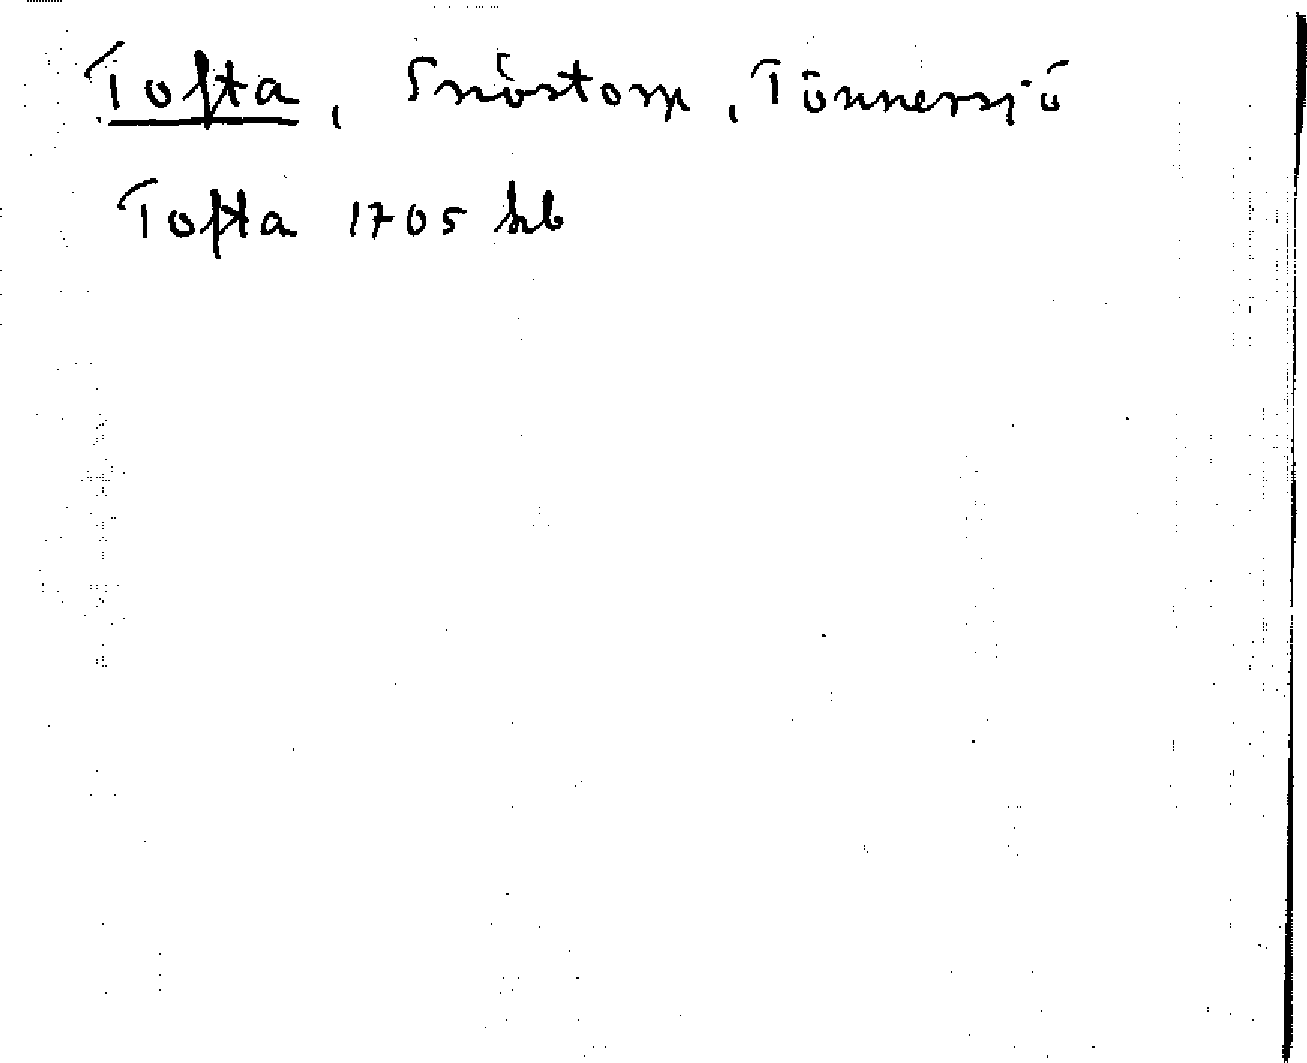 Tofta, Snöstorp, Tönnersjö
Tofta 1705 hb